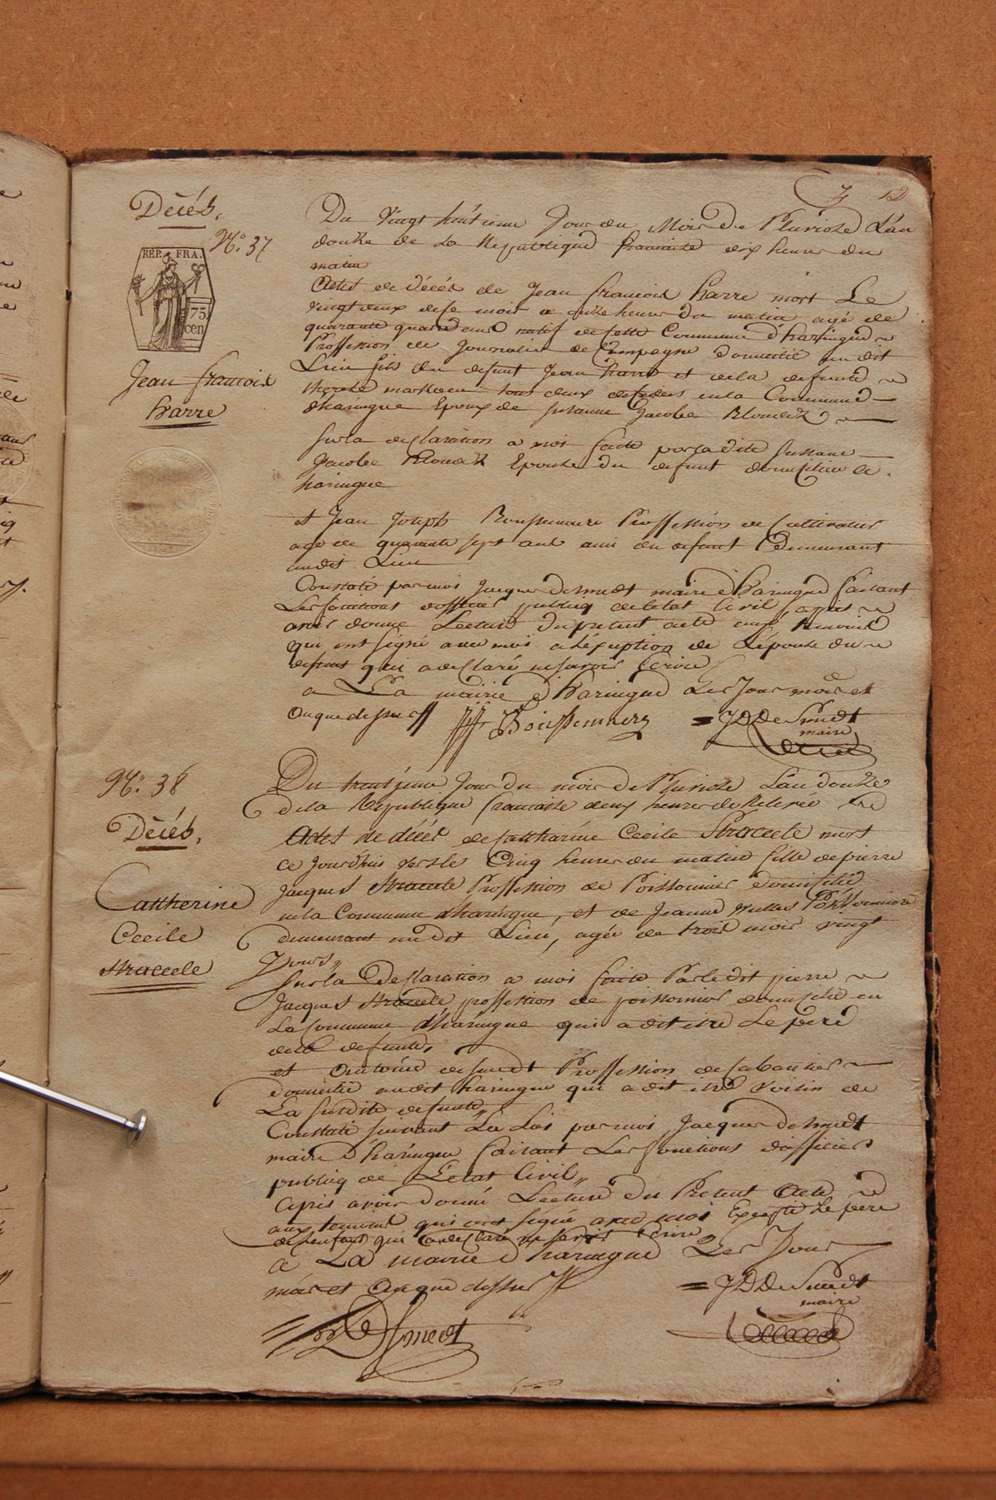 Décéb.
N.o 37
RÉP. FRA.
75
cen
Jean francois
harre
Du vingt huitieme Jour du Mois de Pluviose L'an
douze de la Republique francaise dix heures du
matin
Acte de décés de Jean francois harre mort Le
vingt deux de ce mois a onze heures du matin agé de
quarante quatre ans natif de cette Commune d'haringue
Proffession de Journalier de Campagne domicilié au dit
Lieu fils du defunt Jean harre et de la defunte
tous deux decedes en la Commune
d'haringue Epoux de Susanne Jacobe
sur la declaration a moi faite par la dite Susanne
Jacobe Epouse du defunt domicilie a
haringue
et Jean Joseph Proffession de Cultivateur
age de quarante sept ans ami du defunt Demeurant
audit Lieu
Constaté par moi Jacque desmedt maire d'haringue faisant
Les fonctions d'officier publiq de letat Civil, apres
avoir donne Lecture du present acte aux temoins
qui ont signé avec moi a l'exeption de L'épouse du
defunt qui a declaré ne savoir Ecrire
a La mairie d'haringue Les Jour mois et
an que dessus
= J D De Smedt
maire
N.o 38
Décéb.
Catherine
Cecile
Straccele
Du trentieme Jour du mois de Pluviose L'an douze
de la Republique francaise deux heures de Relevée
Acte de décés de Catharine Cecile Straccele mort
ce Jourdhui vers les Cinq heures du matin fille de pierre
Jacques Straccele Proffession de Poissonnier domicilié
en la Commune d'haringue, et de Jeanne
demeurant au dit Lieu, agée de trois mois vingt
Jours
sur la Declaration a moi faite Par le dit pierre
Jacques Straccele proffession de poissonnier domicilié en
La Commune d'haringue qui a dit etre Le pere
de la defunte,
et desmedt Proffession de Cabaretier
domicilié au dit haringue qui a dit etre voisin de
La susdite defunte
Constaté suivant La Loi par moi Jacque desmedt
maire d'haringue faisant Les fonctions d'officier
publiq de L'etat Civil,
Apres avoir donné Lecture du Present Acte
aux temoins qui ont signe avec moi Excepté Le pere
de L'enfant qui a declaré ne savoir Ecrire
a La mairie d'haringue Les Jour
mois et an que dessus
= J D De Smedt
maire
DSmedt